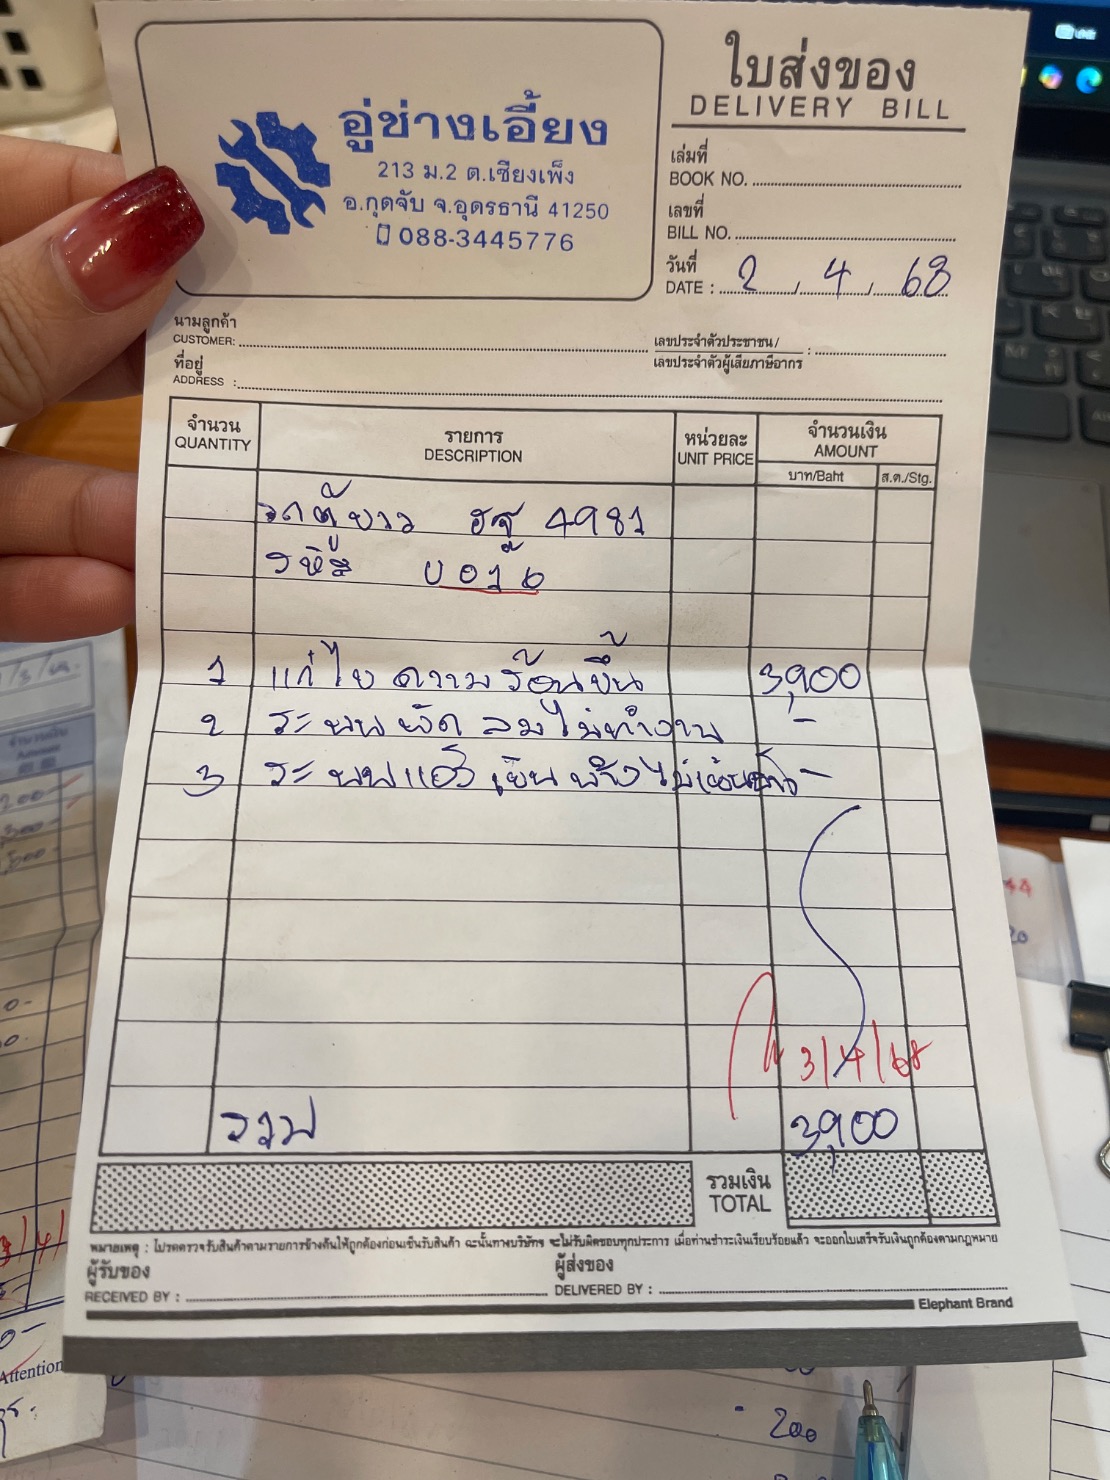 อู่ช่างเอี้ยง
213 ม.2 ต.เชียงเพ็ง
อ.กุดจับ จ.อุดรธานี 41250
088-3445776
ใบส่งของ
DELIVERY BILL
เล่มที่
BOOK NO.
เลขที่
BILL NO.
วันที่
DATE : 2 / 4 / 68
นามลูกค้า
CUSTOMER:
เลขประจำตัวประชาชน /
เลขประจำตัวผู้เสียภาษีอากร :
ที่อยู่
ADDRESS :
จำนวน รายการ หน่วยละ จำนวนเงิน
QUANTITY DESCRIPTION UNIT PRICE AMOUNT
บาท/Baht ส.ต./Stg.
รถตู้ยาว ฮฐ 4981
รหัส ป 016
1 แก้ไข ความร้อนขึ้น 3,900
2 ระบบพัดลมไม่ทำงาน -
3 ระบบแอร์ เย็นบ้างไม่เย็นบ้าง -
3/4/68
รวม 3,900
รวมเงิน
TOTAL
หมายเหตุ : โปรดตรวจรับสินค้าตามรายการข้างต้นให้ถูกต้องก่อนเซ็นรับสินค้า ฉะนั้นทางบริษัทฯ จะไม่รับผิดชอบทุกประการ เมื่อท่านชำระเงินเรียบร้อยแล้ว จะออกใบเสร็จรับเงินถูกต้องตามกฎหมาย
ผู้รับของ ผู้ส่งของ
RECEIVED BY : DELIVERED BY :
Elephant Brand
Attention
200